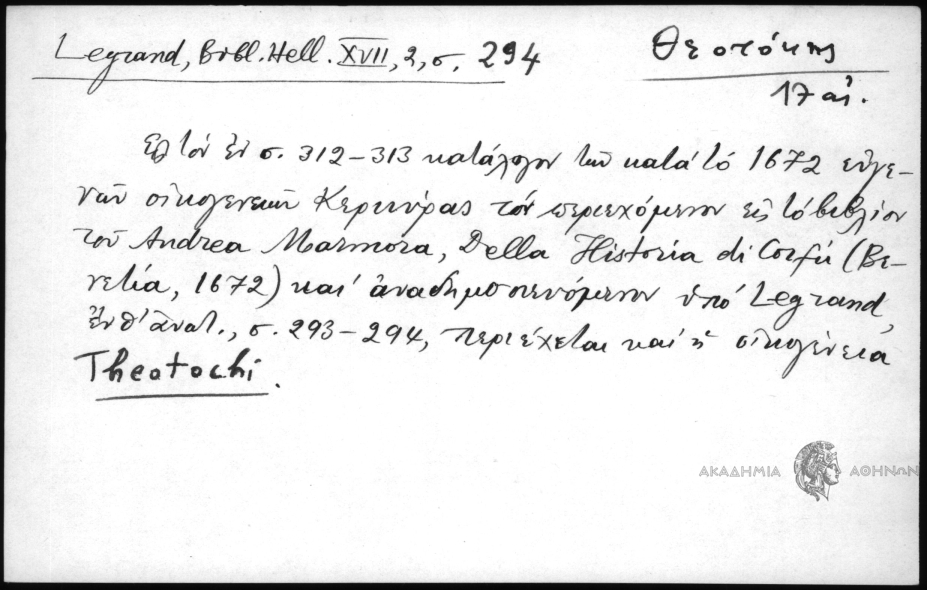 Legrand, Bibl. Hell. XVII, 2, σ. 294
Θεοτόκης
17 αἰ.
Εἰς τὸν ἐν σ. 312-313 κατάλογον τῶν κατὰ τὸ 1672 εὐγε-
νῶν οἰκογενειῶν Κερκύρας τὸν περιεχόμενον εἰς τὸ βιβλίον
τοῦ Andrea Marmora, Della Historia di Corfú (Βε-
νετία, 1672) καὶ ἀναδημοσιευόμενον ὑπὸ Legrand,
ἔνθ' ἀνωτ., σ. 293-294, περιέχεται καὶ ἡ οἰκογένεια
Theotochi.
ΑΚΑΔΗΜΙΑ ΑΘΗΝΩΝ